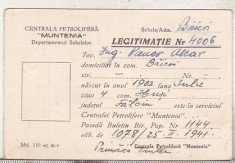 CENTRALA PETROLIFERĂ
"MUNTENIA"
Departamentul Schelelor
Schela/Adm. Băicoi
LEGITIMAȚIE Nº 4006
Tov. Ing. Oscar
domiciliat în com. Băicoi
născut în anul 1902 luna Iulie
ziua 4 com. Huși
județul Fălciu este în serviciul
Centralei Petrolifere "Muntenia"
Posedă Buletin Bir. Pop. Nº 1144
din 1078/25 1941.
Centrala Petroliferă "Muntenia"
Md. 110